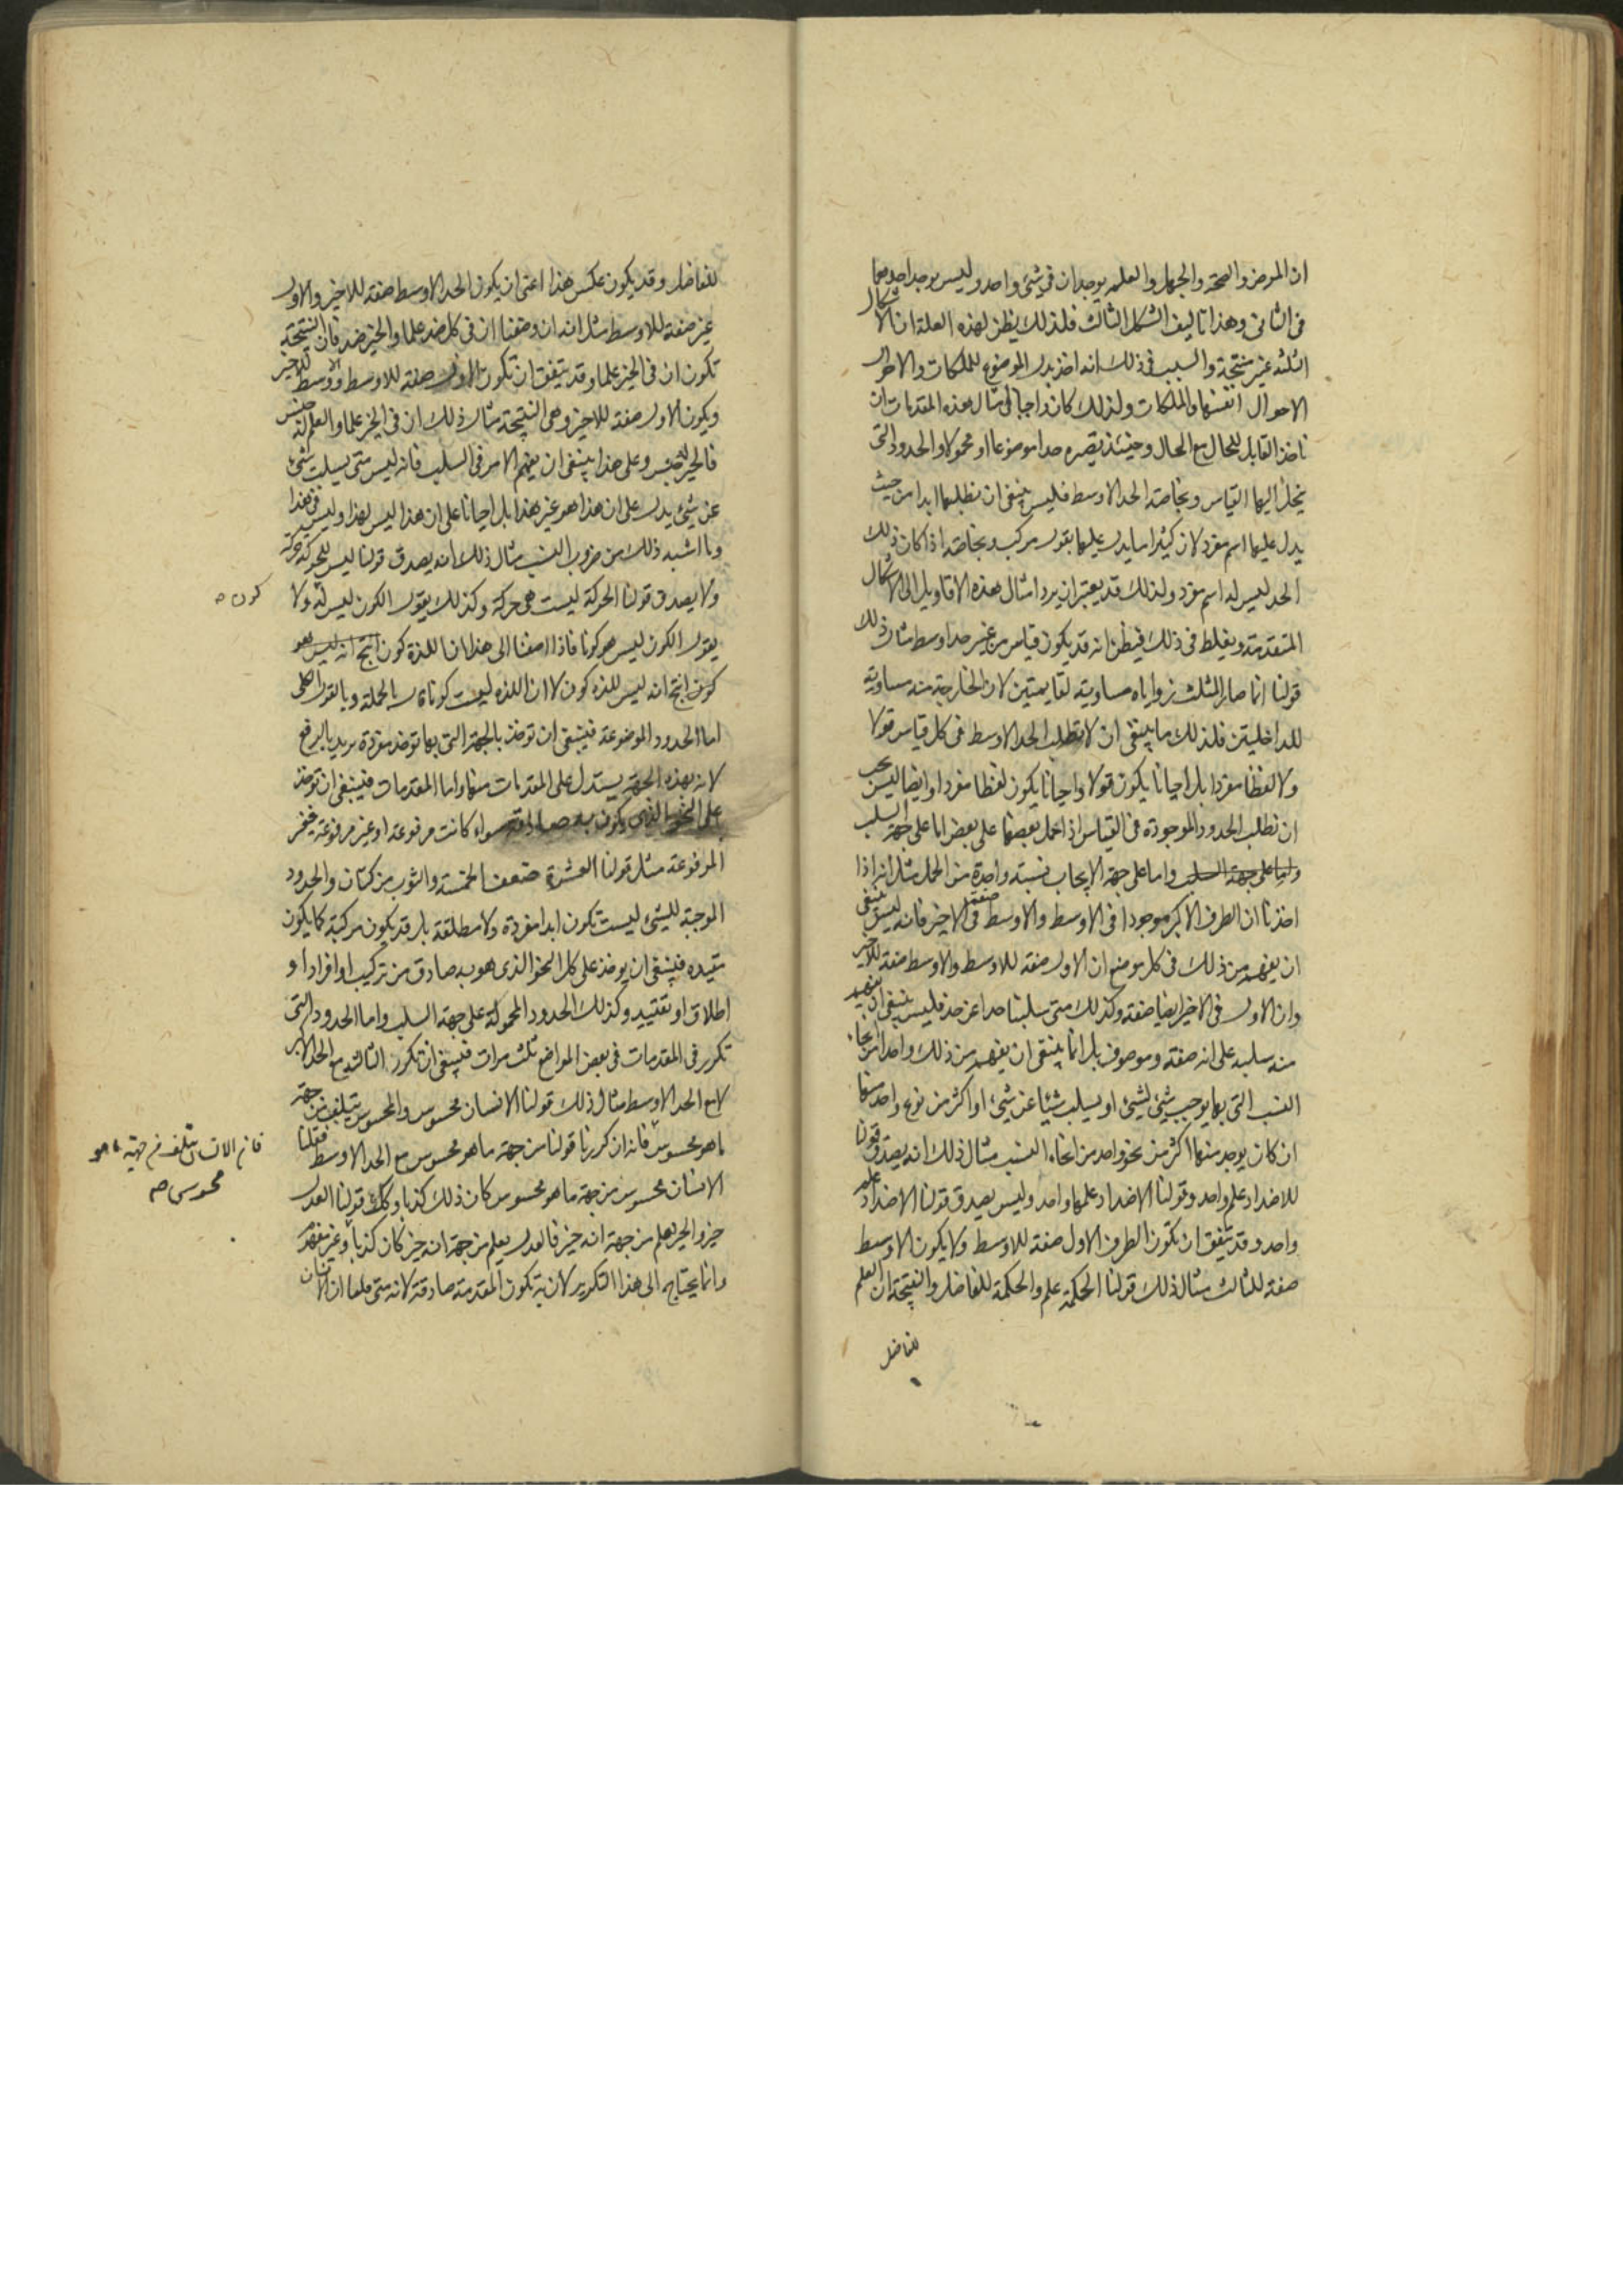 ان المرض والصحة والجهل والعلم يوجدان فى شئ واحد وليس يوجد احدهما
فى الثانى وهذا تاليف الشكل الثالث فلذلك يظن لهذه العلة ان الاشكال
الثلثة غير منتجة والسبب فى ذلك انه اخذ بدل الموضوع للملكات والاحوال
الاحوال انفسها والملكات ولذلك كان واجبا فى مثال هذه المقدمات ان
ناخذ القابل للحال مع الحال وحينئذ يصير حدا موضوعا او محمولا والحدود التى
ينحل اليها القياس وبخاصة الحد الاوسط فليس ينبغى ان نطلبها ابدا من حيث
يدل عليها اسم مفرد لان كثيرا ما يدل عليها بقول مركب وبخاصة اذا كان ذلك
الحد ليس له اسم مفرد ولذلك قد يعتبر ان يرد امثال هذه الاقاويل الى الاشكال
المتقدمة ويغلط فى ذلك فيظن انه قد يكون قياس من غير حد اوسط مثال ذلك
قولنا انما صار المثلث زواياه مساوية لقايمتين لان الخارجة منه مساوية
للداخليتين فلذلك ما ينبغى ان لا تطلب الحد الاوسط فى كل قياس قولا
ولا لفظا مفردا بل احيانا يكون قولا واحيانا يكون لفظا مفردا وايضا ليس يجب
ان نطلب الحدود الموجودة فى القياس اذا حمل بعضها على بعض اما على جهة السلب
واما على جهة السلب واما على جهة الايجاب نسبة واحدة من الحمل مثل انه اذا
اخذنا ان الطرف الاكبر موجودا فى الاوسط والاوسط صفة فى الاخير فانه ليس ينبغى
ان يفهم من ذلك فى كل موضع ان الاول صفة للاوسط والاوسط صفة للاخير
وان الاول فى الاخير ايضا صفة وكذلك متى سلبنا حدا عن حد فليس ينبغى ان يفهم
منه سلبه على انه صفة وموصوف بل انما ينبغى ان يفهم من ذلك واحدا من انحاء
النسب التى بها يوجب شئ لشئ او يسلب شيئا عن شئ او اكثر من نوع واحد منها
ان كان يوجد منها اكثر من نحو واحد من انحاء النسب مثال ذلك انه يصدق قولنا
للاضداد علم واحد وقولنا الاضداد علمها واحد وليس يصدق قولنا الاضداد علم
واحد وقد يتفق ان يكون الطرف الاول صفة للاوسط ولا يكون الاوسط
صفة للثالث مثال ذلك قولنا الحكمة علم والحكمة للفاضل والنتيجة ان العلم
للفاضل
للفاضل وقد يكون عكس هذا اعنى ان يكون الحد الاوسط صفة للاخير والاول
غير صفة للاوسط مثل انه ان وضعنا ان فى كل ضد علما والخير ضد فان النتيجة
تكون ان فى الخير علما وقد يتفق ان تكون الاول صفة للاوسط والاوسط للاخير
ويكون الاول صفة للاخير وهى النتيجة مثال ذلك ان فى الخير علما والعلم له جنس
فالخير له جنس وعلى هذا ينبغى ان يفهم الامر فى السلب فانه ليس متى يسلب شئ
عن شئ يدل على ان هذا هو غير هذا بل احيانا على ان هذا ليس لهذا وليس فى هذا
وما اشبه ذلك من ضروب النسب مثال ذلك انه يصدق قولنا ليس للحركة حركة
ولا يصدق قولنا الحركة ليست هى حركة وكذلك يقول الكون ليس له ولا
كون صح
يقول الكون ليس هو كونا فاذا اضفنا الى هذا ان اللذة كون انتج انه ليس هو
كون انتج انه ليس للذة كون لا ان اللذة ليست كونا بالجملة وبالقول الكلى
اما الحدود الموضوعة فينبغى ان توخذ بالجهة التى بها توخذ مفردة يريد بالرفع
لانه بهذه الجهة يستدل على المقدمات منها واما المقدمات فينبغى ان توخذ
على النحو الذى يكون به صادقة سواء كانت مرفوعة او غير مرفوعة فغير
المرفوعة مثل قولنا العشرة ضعف الخمسة والثوب من كتان والحدود
الموجبة للشئ ليست تكون ابدا مفردة ولا مطلقة بل قد يكون مركبة كما يكون
مقيده فينبغى ان يوخذ على كل النحو الذى هو به صادق من تركيب او افراد او
اطلاق او تقييد وكذلك الحدود المحمولة على جهة السلب واما الحدود التى
تكرر فى المقدمات فى بعض المواضع ثلث مرات فينبغى ان تكرر الثالث مع الحد الاكبر
لا مع الحد الاوسط مثال ذلك قولنا الانسان محسوس والمحسوس يتلف من جهة
ما هو محسوس فانه ان كررنا قولنا من جهة ما هو محسوس مع الحد الاوسط فقلنا
فان الانسان يتلف من جهة ما هو
محسوس صح
الانسان محسوس من جهة ما هو محسوس كان ذلك كذبا وكذلك قولنا العدل
خير والخير يعلم من جهة انه خير فالعدل يعلم من جهة انه خير كان كذبا وغير مفهم
وانما يحتاج الى هذا التكرير لان به تكون المقدمة صادقة لانه متى قلنا ان الانسان